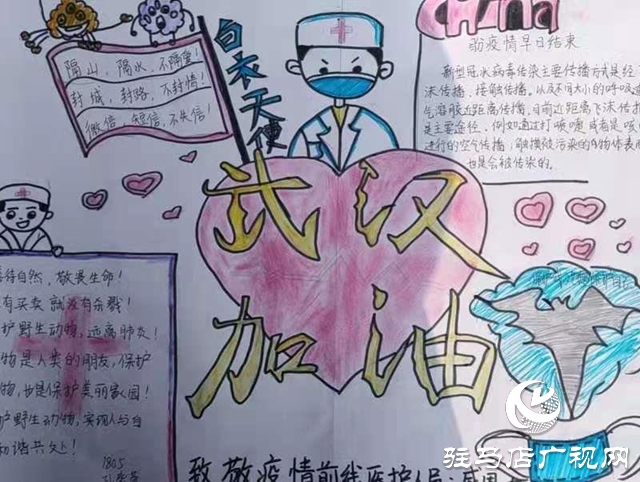 CHina
盼疫情早日结束
隔山,隔水,不隔爱!
封城,封路,不封情!
微信,短信,不失信!
白衣天使
新型冠状病毒传染主要传播方式是经
沫传播,接触传播,以及不同大小的呼吸道
气溶胶近距离传播,目前近距离飞沫传播
是主要途径,例如通过打喷嚏或者是咳
进行的空气传播,触摸被污染的物体表面
也是会被传染的。
武汉
加油
善待自然,敬畏生命!
没有买卖就没有杀戮!
护野生动物,远离肺炎!
物是人类的朋友,保护
物,也是保护美丽家园!
护野生动物,实现人与自
和谐共处!
1805
致敬疫情前线医护人员:武
驻马店广视网